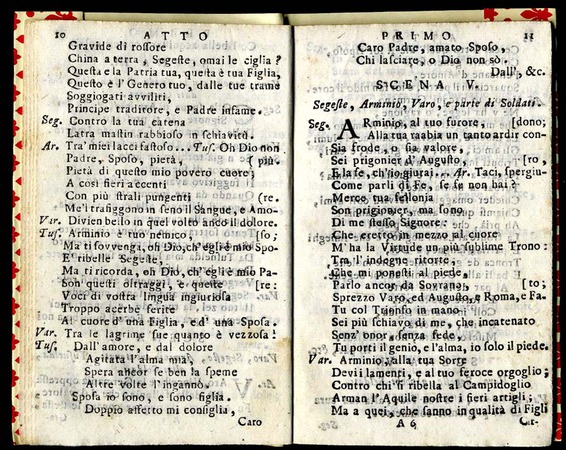 10 ATTO
Gravide di rossore
China a terra, Segeste, omai le ciglia?
Questa e la Patria tua, questa è tua Figlia,
Questo è l' Genero tuo, dalle tue trame
Soggiogati avviliti,
Principe traditore, e Padre infame.
Seg. Contro la tua catena
Latra mastin rabbioso in schiavitù.
Ar. Tra' miei lacci fastoso... Tus. Oh Dio non
Padre, Sposo, pietà, ( più.
Pietà di questo mio povero cuore;
A così fieri accenti
Con più strali pungenti (re.
Me'l trafiggono in seno il Sangue, e Amo-
Var. Divien bello in quel volto anco il dolore.
Tus. Arminio è tuo nemico, [so;
Ma ti sovvenga, oh Dio, ch'egli è mio Spo-
E' ribelle Segeste,
Ma ti ricorda, oh Dio, ch'egli è mio Pa-
Son questi oltraggi, e queste [re:
Voci di vostra lingua ingiuriosa
Troppo acerbe ferite
Al cuore d'una Figlia, e d'una Sposa.
Var. Tra le lagrime sue quanto è vezzosa!
Tus. Dall'amore, e dal dolore
Agitata l'alma mia,
Spera ancor se ben la speme
Altre volte l'ingannò.
Sposa io sono, e sono figlia.
Doppio affetto mi consiglia,
Caro
PRIMO 11
Caro Padre, amato Sposo,
Chi lasciare, o Dio non sò.
Dall', &c.
SCENA V.
Segeste, Arminio, Varo, e parte di Soldati.
Seg. ARminio, al tuo furore, [dono;
Alla tua rabbia un tanto ardir con-
Sia frode, o sia valore,
Sei prigionier d'Augusto, [ro,
E la fe, ch'io giurai... Ar. Taci, spergiu-
Come parli di Fe, se fu non hai?
Mercè tua fellonia
Son prigionier, ma sono
Di me stesso Signore:
Che eretto in mezzo al cuore
M'ha la Virtude un più sublime Trono:
Tra l'indegne ritorte,
Che mi ponesti al piede
Parlo ancor da Sovrano, [to;
Sprezzo Varo, ed Augusto, e Roma, e Fa-
Tu col Trionfo in mano
Sei più schiavo di me, che incatenato
Senz' onor, senza fede,
Tu porti il genio, e l'alma, io solo il piede.
Var. Arminio, alla tua Sorte
Devi i lamenti, e al tuo feroce orgoglio;
Contro chi si ribella al Campidoglio
Arman l'Aquile nostre i fieri artigli;
Ma a quei, che sanno in qualità di Figli
A 6 Cir-